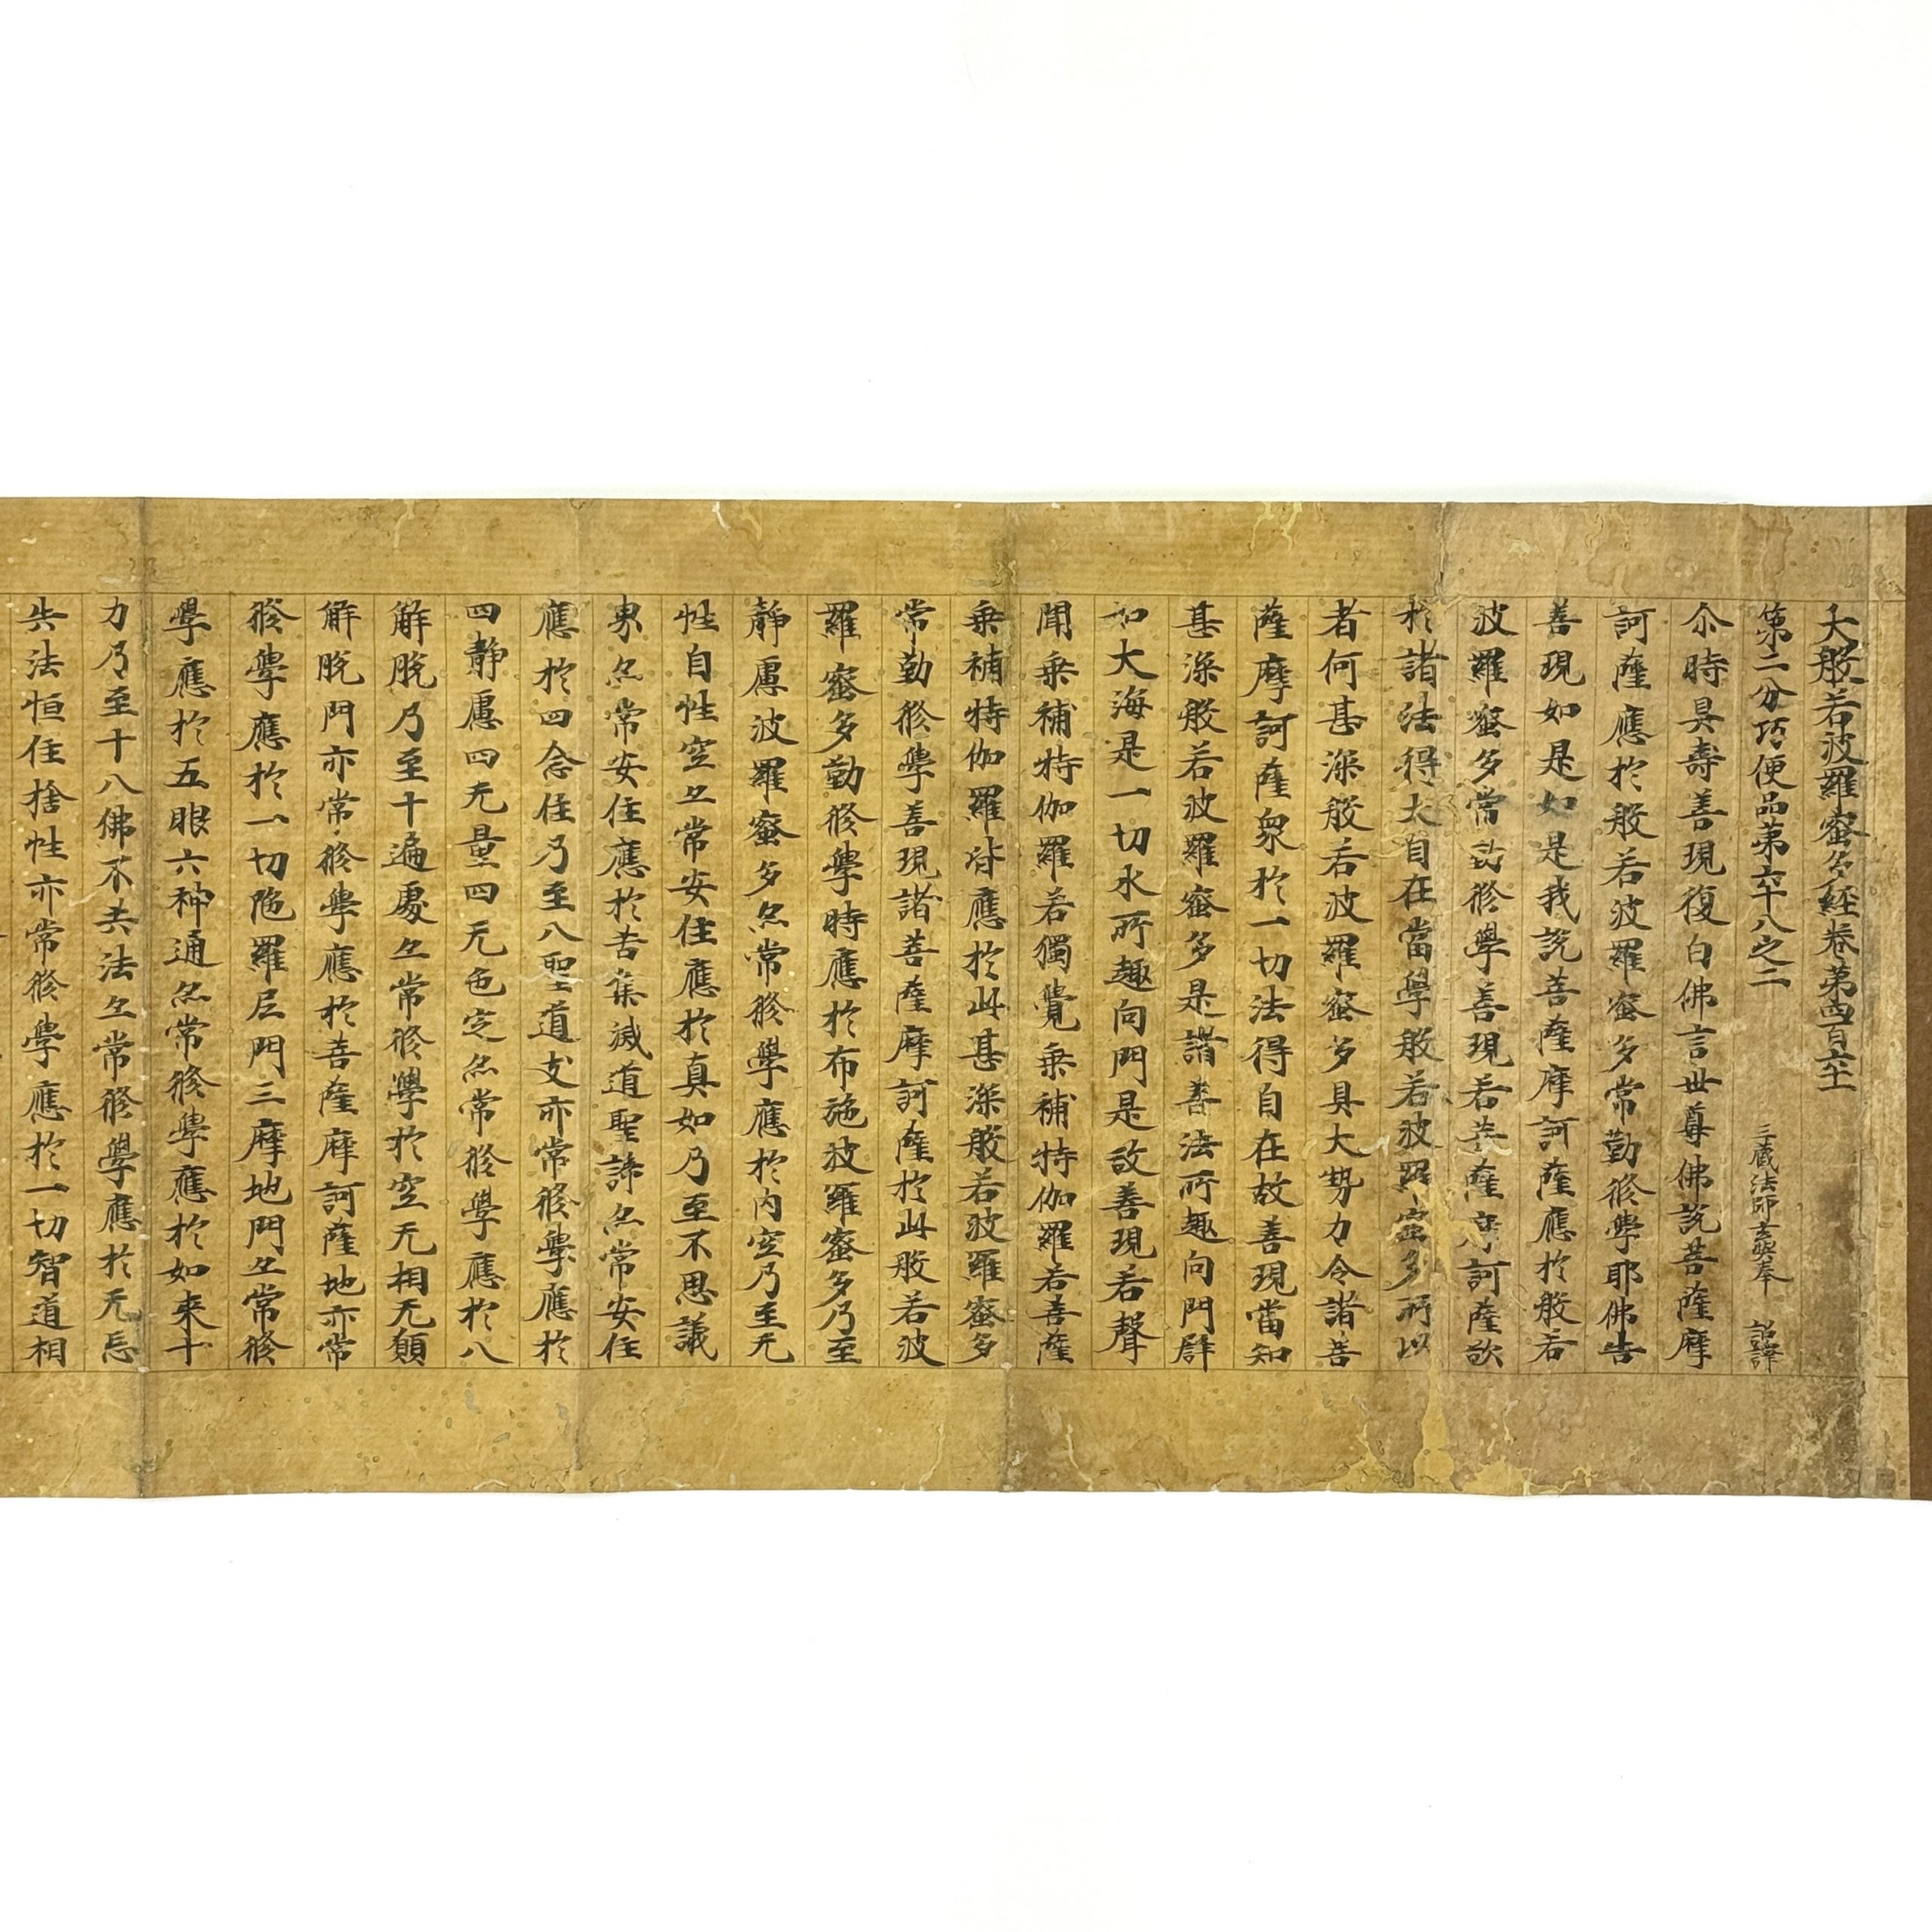 大般若波羅蜜多經卷第四百六十
第二分巧便品第六十八之二　三藏法師玄奘奉　詔譯
尒時具壽善現復白佛言世尊佛說菩薩摩
訶薩應於般若波羅蜜多常勤修學耶佛告
善現如是如是我說菩薩摩訶薩應於般若
波羅蜜多常勤修學善現若菩薩摩訶薩欲
於諸法得大自在當學般若波羅蜜多所以
者何甚深般若波羅蜜多具大勢力令諸菩
薩摩訶薩衆於一切法得自在故善現當知
甚深般若波羅蜜多是諸善法所趣向門辟
如大海是一切水所趣向門是故善現若聲
聞乗補特伽羅若獨覺乗補特伽羅若菩薩
乗補特伽羅皆應於此甚深般若波羅蜜多
常勤修學善現諸菩薩摩訶薩於此般若波
羅蜜多勤修學時應於布施波羅蜜多乃至
靜慮波羅蜜多亦常修學應於內空乃至无
性自性空亦常安住應於真如乃至不思議
界亦常安住應於苦集滅道聖諦亦常安住
應於四念住乃至八聖道支亦常修學應於
四靜慮四无量四无色定亦常修學應於八
解脫乃至十遍處亦常修學於空无相无願
解脫門亦常修學應於菩薩摩訶薩地亦常
修學應於一切陁羅尼門三摩地門亦常修
學應於五眼六神通亦常修學應於如来十
力乃至十八佛不共法亦常修學應於无忘
失法恒住捨性亦常修學應於一切智道相